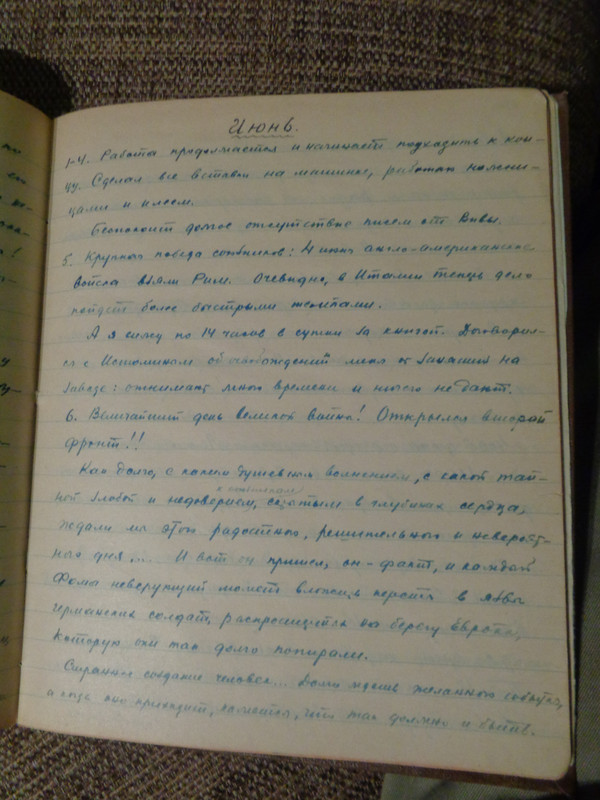 Июнь.
1-4. Работа продолжается и начинает подходить к кон-
цу. Сделал все вставки на машинке, работал ножни-
цами и клеем.
Беспокоит долгое отсутствие писем от Вивы.
5. Крупная победа союзников: 4 июня англо-американские
войска взяли Рим. Очевидно, в Италии теперь дело
пойдет более быстрыми темпами.
А я сижу по 14 часов в сутки за книгой. Договорил-
ся с Истоминым об освобождении меня от занятий на
заводе: отнимают много времени и ничего не дают.
6. Величайший день великой войны! Открылся второй
фронт!!
Как долго, с каким душевным волнением, с какой тай-
ной злобой и недоверием, скрытым в глубинах сердца,
ждали мы этого радостного, решительного и невероят-
ного дня.... И вот он пришел, он - факт, и каждый
Фома неверующий может вложить персты в язвы
германских солдат, распростертых на берегу Европы,
которую они так долго попирали.
Странное создание человек... Долго ждешь желанного события,
а когда оно приходит, кажется, что так должно и быть.